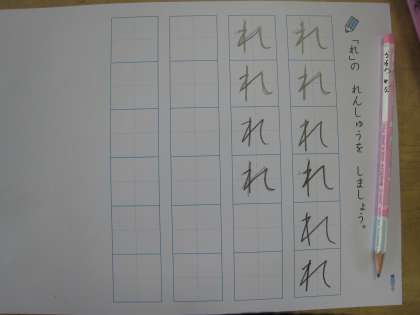 「れ」の れんしゅうを しましょう。
れ
れ
れ
れ
れ
れ
れ
れ
れ
れ